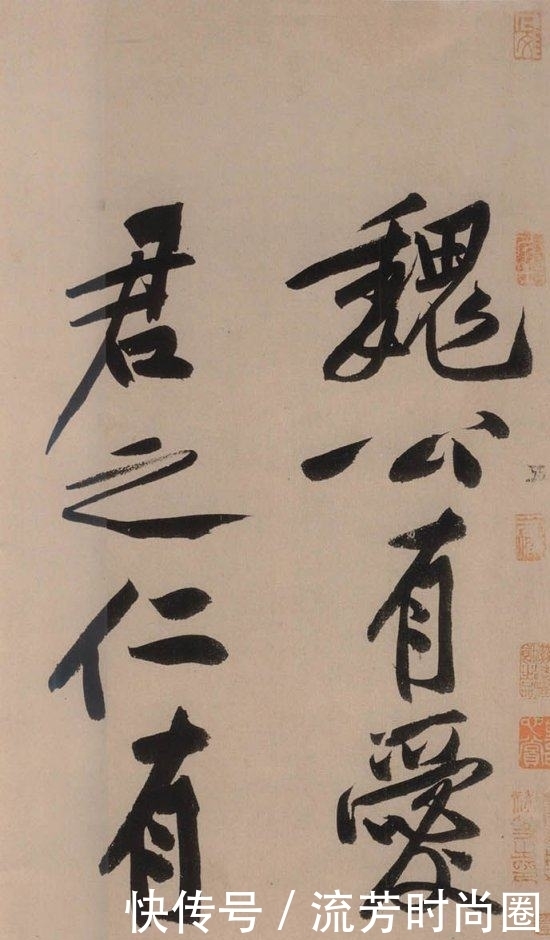 魏公有愛
君之仁有
快传号 / 流芳时尚圈